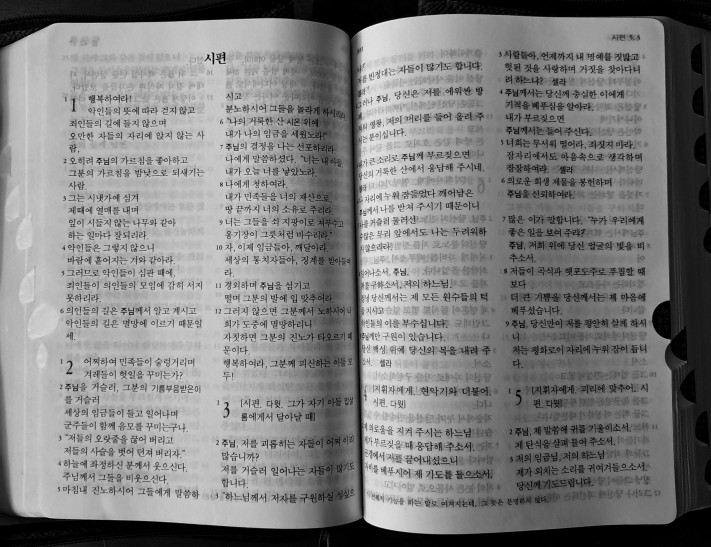 시편
1
1 행복하여라!
악인들의 뜻에 따라 걷지 않고
죄인들의 길에 들지 않으며
오만한 자들의 자리에 앉지 않는 사
람,
2 오히려 주님의 가르침을 좋아하고
그분의 가르침을 밤낮으로 되새기는
사람.
3 그는 시냇가에 심겨
제때에 열매를 내며
잎이 시들지 않는 나무와 같아
하는 일마다 잘되리라.
4 악인들은 그렇지 않으니
바람에 흩어지는 겨와 같아라.
5 그러므로 악인들이 심판 때에,
죄인들이 의인들의 모임에 감히 서지
못하리라.
6 의인들의 길은 주님께서 알고 계시고
악인들의 길은 멸망에 이르기 때문일
세.
2
1 어찌하여 민족들이 술렁거리며
겨레들이 헛일을 꾸미는가?
2 주님을 거슬러, 그분의 기름부음받은이
를 거슬러
세상의 임금들이 들고 일어나며
군주들이 함께 음모를 꾸미는구나.
3 “저들의 오랏줄을 끊어 버리고
저들의 사슬을 벗어 던져 버리자.”
4 하늘에 좌정하신 분께서 웃으신다.
주님께서 그들을 비웃으신다.
5 마침내 진노하시어 그들에게 말씀하
시고
분노하시어 그들을 놀라게 하시리라.
6 “나의 거룩한 산 시온 위에
내가 나의 임금을 세웠노라!”
7 주님의 결정을 나는 선포하리라.
나에게 말씀하셨다. “너는 내 아들
내가 오늘 너를 낳았노라.
8 나에게 청하여라.
내가 민족들을 너의 재산으로,
땅 끝까지 너의 소유로 주리라.
9 너는 그들을 쇠 지팡이로 쳐부수고
옹기장이 그릇처럼 바수리라.”
10 자, 이제 임금들아, 깨달아라.
세상의 통치자들아, 징계를 받아들여
라.
11 경외하며 주님을 섬기고
떨며 그분의 발에 입 맞추어라.
12 그러지 않으면 그분께서 노하시어 너
희가 도중에 멸망하리니
자칫하면 그분의 진노가 타오르기 때
문이다.
행복하여라, 그분께 피신하는 이들 모
두!
3
1 [시편. 다윗. 그가 자기 아들 압살
롬에게서 달아날 때]
2 주님, 저를 괴롭히는 자들이 어찌 이리
많습니까?
저를 거슬러 일어나는 자들이 많기도
합니다.
3 “하느님께서 저자를 구원하실 성싶으
빈정대는 자들이 많기도 합니다.
셀라
주님, 당신은 저를 에워싼 방
영광, 저의 머리를 들어 올려 주
분이십니다.
큰 소리로 주님께 부르짖으면
당신의 거룩한 산에서 응답해 주시네.
셀라
자리에 누워 잠들었다 깨어남은
주님께서 나를 받쳐 주시기 때문이니
나를 거슬러 둘러선
수많은 무리 앞에서도 나는 두려워하
지 않으리라.
일어나소서, 주님.
저를 구하소서, 저의 하느님.
정녕 당신께서는 제 모든 원수들의 턱
을 치시고
악인들의 이를 부수십니다.
주님께만 구원이 있습니다.
당신 백성 위에 당신의 복을 내려 주
소서. 셀라
[지휘자에게. 현악기와 더불어.
시편. 다윗]
제 의로움을 지켜 주시는 하느님
제가 부르짖을 때 응답해 주소서.
곤경에서 저를 끌어내셨으니
자비를 베푸시어 제 기도를 들으소서.
시편 5, 3
3 사람들아, 언제까지 내 명예를 짓밟고
헛된 것을 사랑하며 거짓을 찾아다니
려 하느냐? 셀라
4 주님께서는 당신께 충실한 이에게
기적을 베푸심을 알아라.
내가 부르짖으면
주님께서는 들어 주신다.
5 너희는 무서워 떨어라, 죄짓지 마라.
잠자리에서도 마음속으로 생각하며
잠잠하여라. 셀라
6 의로운 희생 제물을 봉헌하며
주님을 신뢰하여라.
7 많은 이가 말합니다. “누가 우리에게
좋은 일을 보여 주랴?”
주님, 저희 위에 당신 얼굴의 빛을 비
추소서.
8 저들이 곡식과 햇포도주로 푸짐할 때
보다
더 큰 기쁨을 당신께서는 제 마음에
베푸셨습니다.
9 주님, 당신만이 저를 평안히 살게 하시
니
저는 평화로이 자리에 누워 잠이 듭니
다.
5
1 [지휘자에게. 피리에 맞추어. 시
편. 다윗]
2 주님, 제 말씀에 귀를 기울이소서.
제 탄식을 살펴 들어 주소서.
3 저의 임금님, 저의 하느님
제가 외치는 소리를 귀여겨들으소서.
당신께 기도드립니다.